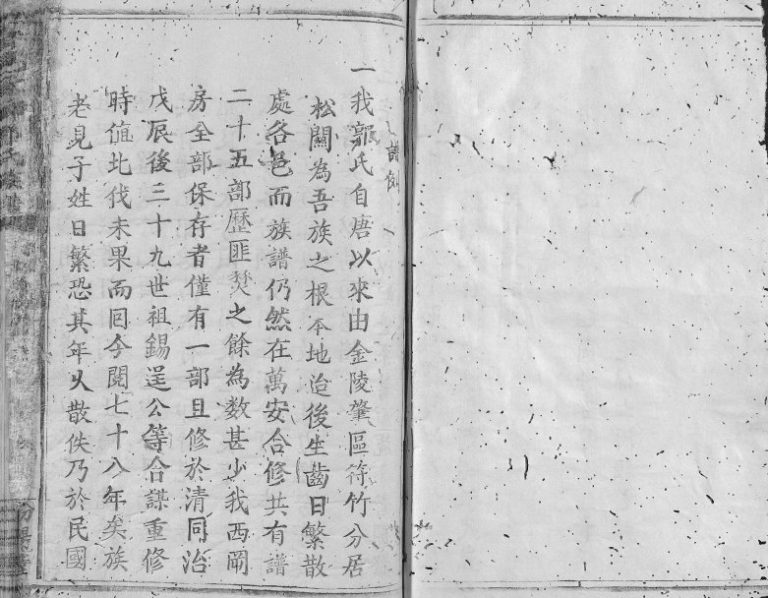 譜例
一我郭氏自唐以來由金陵肇區符竹分居
松關為吾族之根本地迨後生齒日繁散
處各邑而族譜仍然在萬安合修共有譜
二十五部歷匪焚之餘為数甚少我西岡
房全部保存者僅有一部且修於清同治
戊辰後三十九世祖錫逞公等合謀重修
時值北伐未果而囘今閱七十八年矣族
老見子姓日繁恐其年久散佚乃於民國
氏族譜